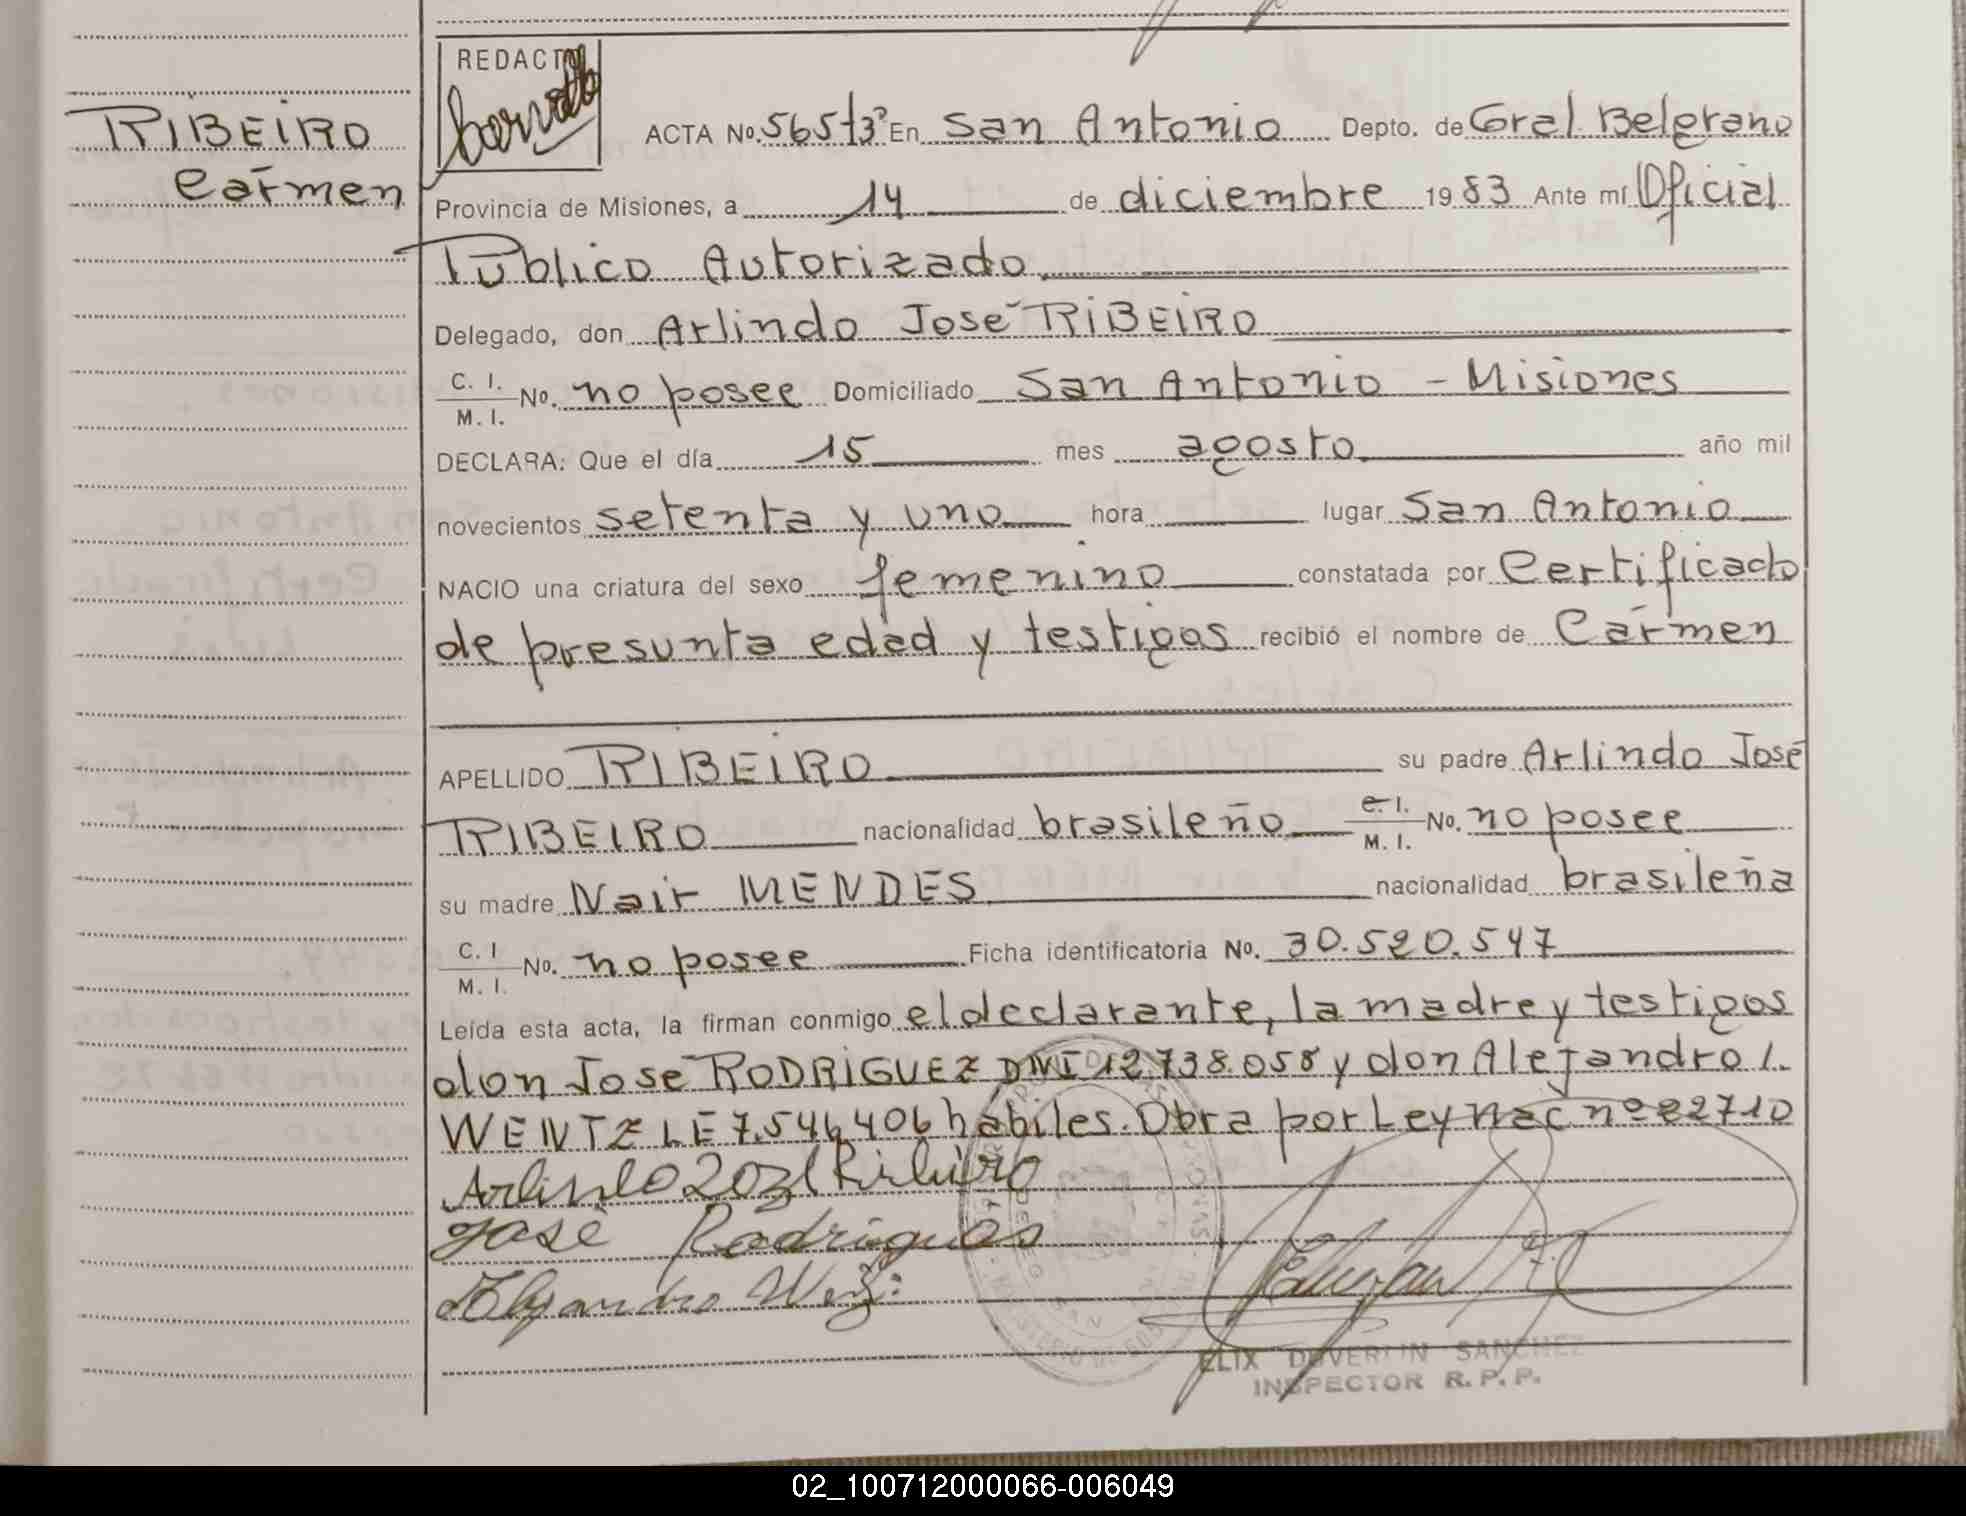 REDACTOR
RIBEIRO
Cármen
ACTA No. 565 t3º En San Antonio Depto. de Gral. Belgrano
Provincia de Misiones, a 14 de diciembre 1983 Ante mí Oficial
Público Autorizado.
Delegado, don Arlindo José RIBEIRO
C. I. M. I. No. no posee Domiciliado San Antonio - Misiones
DECLARA: Que el día 15 mes agosto año mil
novecientos setenta y uno hora lugar San Antonio
NACIO una criatura del sexo femenino constatada por Certificado
de presunta edad y testigos recibió el nombre de Cármen
APELLIDO RIBEIRO su padre Arlindo José
RIBEIRO nacionalidad brasileño C. I. M. I. No. no posee
su madre Nair MENDES nacionalidad brasileña
C. I M. I. No. no posee Ficha identificatoria No. 30.520.547
Leída esta acta, la firman conmigo el declarante, la madre y testigos
don José RODRIGUEZ DNI 12.738.058 y don Alejandro
WENTZ LE 7.546,406 hábiles. Obra por Ley nac nº 22710
Arlindo José Ribeiro
José Rodrigues
Alejandro
ELIX DUVERLIN SANCHEZ
INSPECTOR R. P. P.
02_100712000066-006049